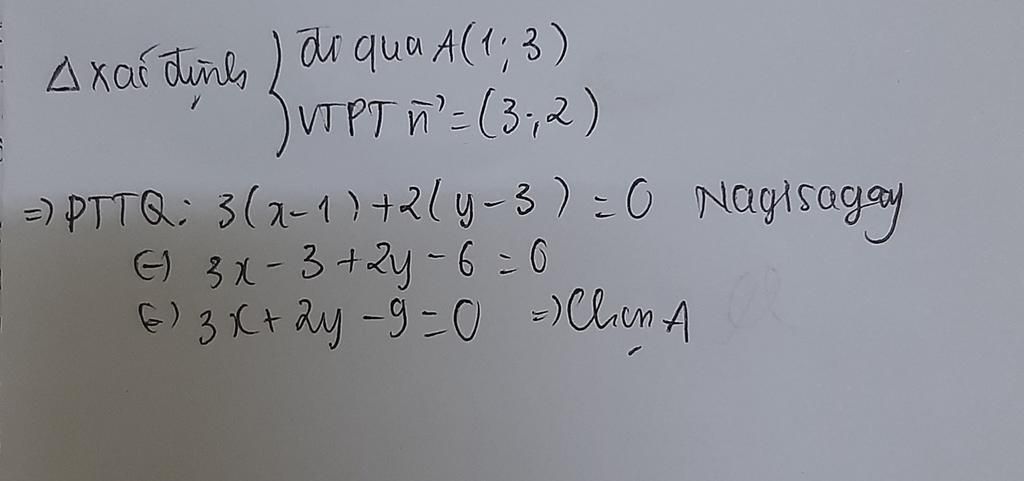 Δ xác định { đi qua A(1; 3)
VTPT n⃗ = (3; 2)
=> PTTQ: 3(x-1)+2(y-3)=0 Nagisagay
(=) 3x-3+2y-6=0
(=) 3x+2y-9=0 => Chọn A